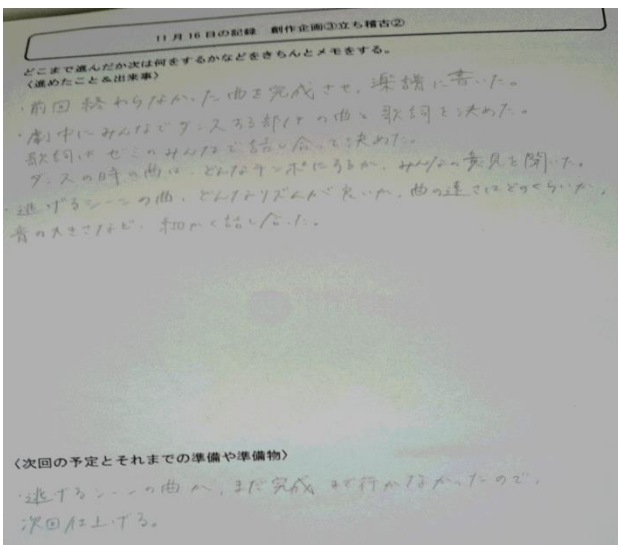 11月16日の記録　創作企画③立ち稽古②
どこまで進んだか次は何をするかなどをきちんとメモをする。
〈進めたこと&出来事〉
・前回終わらなかった曲を完成させ、楽譜に書いた。
・劇中にみんなでダンスする部分の曲と歌詞を決めた。
歌詞はゼミのみんなで話し合って決めた。
ダンスの時の曲は、どんなテンポにするか、みんなの意見を聞いた。
・逃げるシーンの曲、どんなリズムが良いか、曲の速さはどのくらいか、
音の大きさなど、細かく話し合った。
〈次回の予定とそれまでの準備や準備物〉
・逃げるシーンの曲が、まだ完成まで行かなかったので、
次回仕上げる。